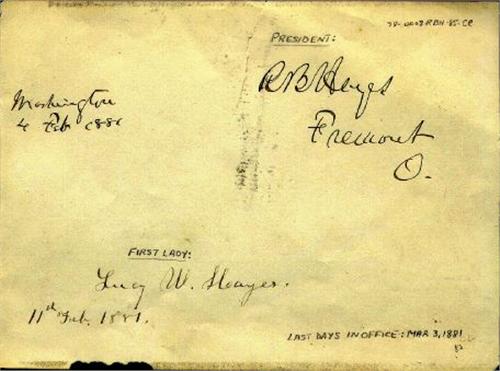 PRESIDENT:
R B Hayes
Fremont
O.
Washington
4 Feb 1881
FIRST LADY:
Lucy W. Hayes.
11th Feb. 1881.
LAST DAYS IN OFFICE: MAR 3, 1881